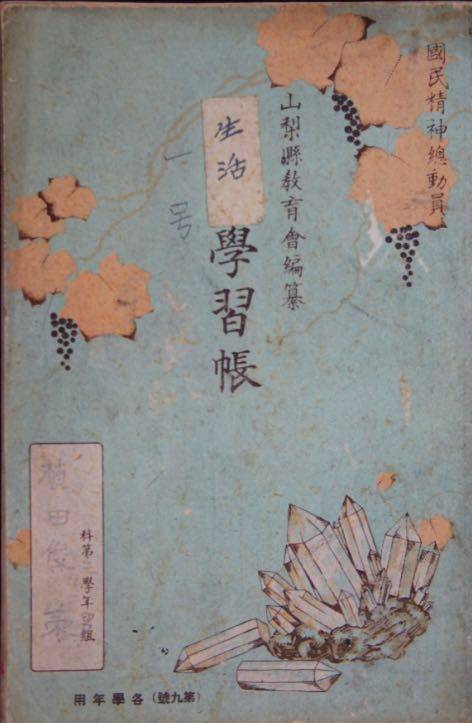 國民精神總動員
山梨縣教育會編纂
生活
學習帳
一号
科第二學年 組
田
用年學各 (號九第)